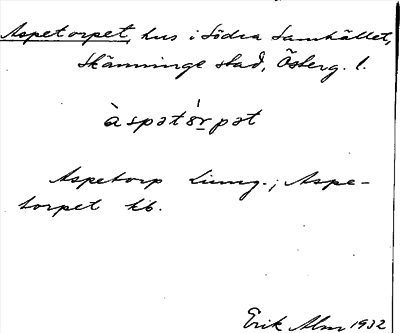 Aspetorpet, hus i Södra Samhället,
Skänninge stad, Österg. l.
àspətó̀r̲pət
Aspetorp Ljung.; Aspe-
torpet kb.
Erik Alm 1932